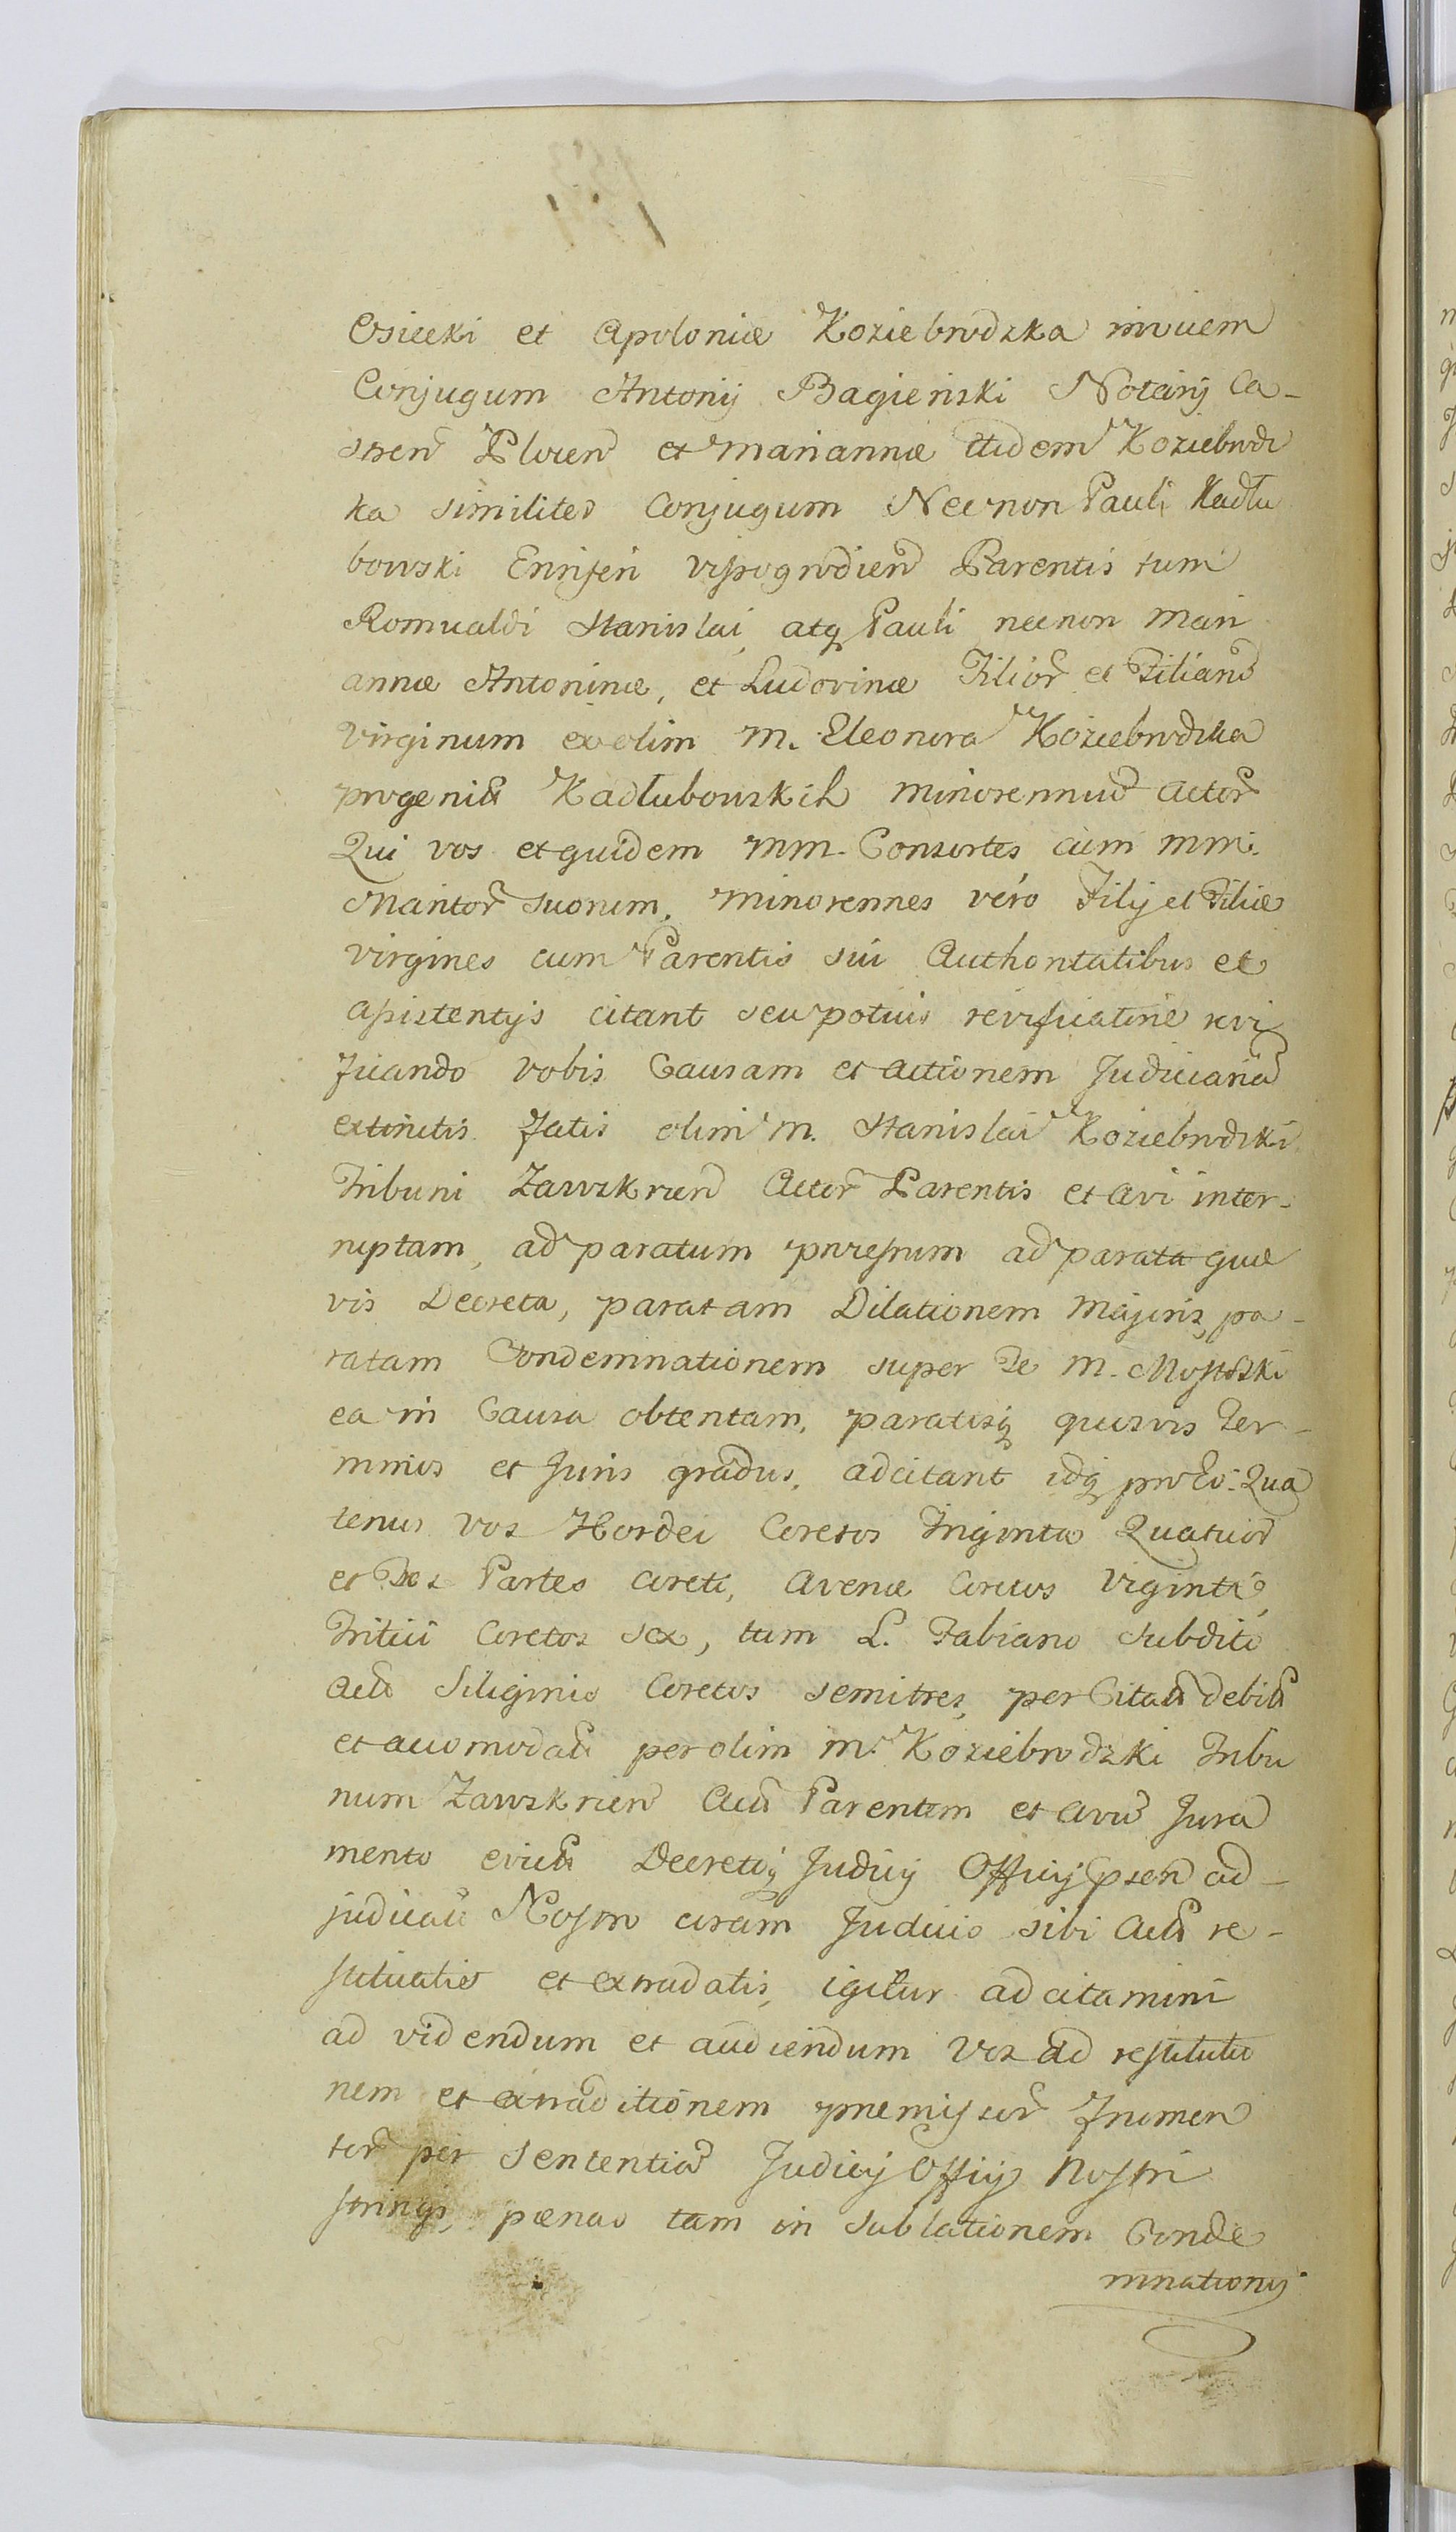 Osiecki et Apoloniæ Koziebrodzka invicem
Conjugum Antonij Bagieński Notarij Ca-
stren Plocen et Mariannæ itidem Koziebrodz
ka similiter Conjugum Necnon Pauli Kadłu
bowski Ensiferi Wyszogrodien Parentis tum
Romualdi Stanislai, atq Pauli necnon Mari
annæ Antoninæ, et Ludovinæ Filior et Filiaru
Virginum ex olim M. Eleonora Koziebrodzka
progenita Kadłubowskich minorennium Actor
Qui vos et quidem MM. Consortes cum MM.
Maritor suorum, minorennes vero Filij et Filiæ
virgines cum Parentis sui Authoritatibus et
assistentijs citant seu potius revificatine revi
ficando vobis Causam et actionem Judiciaria
extinctis fatis olim M. Stanislai Koziebrodzki
Tribuni Zawskrzen Actor Parentis et Avi inter-
ruptam, ad paratum processum ad parata quæ
vis Decreta, paratam Dilationem Majoris, pa-
ratam Condemnationem super Te M. Mostowski
ea in Causa obtentam, paratisq quisvis Ter-
minos et Juris gradus, adcitant idq pro Eo. Qua
tenus vos Hordei Coretos Triginta Quatuor
et Dos Partes coreti, Avenæ coretos Viginti,
Tritici Coretos sex, tum L. Fabiano subdito
Acto Siliginis Coretos semitres, per Citatu debitu
et accomodatu per olim M. Koziebrodzki Tribu
num Zawskrzen Actu Parentem et Avu Jura
mento evictu Decretoq Judicij Officij Ipsen ad-
judicatu Nostro coram Judicio sibi Actu re-
stituatis et extradatis, igitur adcitamini
ad videndum et audiendum Vos ad restitutio
nem et extraditionem præmissor Frumen
tor per Sententia Judicij Officij Nostri
stringi, pœnas tam in sublationem Conde
mnationis